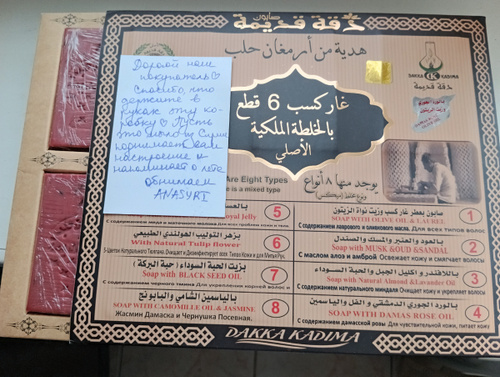 صابون
دقة قديمة
هدية من أرمغان حلب
DAKKA KADIMA
دقة قديمة
غار كسب 6 قطع
بالخلطة الملكية
الأصلي
Дорогой наш
покупатель♡
Спасибо, что
держите в
руках эту ко-
робку☺ Пусть
это мыло из Сирии
поднимает Вам
настроение и
напоминает о лете
обнимаем
ANASYRI
يوجد منها 8 أنواع
Are Eight Types
is a mixed type
1
صابون بعطر غار كسب وزيت نواة الزيتون
SOAP WITH OLIVE OIL & LAUREL
С содержанием лаврового и оливкового масла. Для всех типов
2
بالعود والعنبر والمسك والصندل
Soap with MUSK &OUD &SANDAL
С маслом алоэ и амброй Освежает кожу и смягчает волосы
3
Soap with Natural Almond &Lavander Oil
С содержанием натурального миндаля Очищает кожу и укрепляет волосы
4
بالورد الجوري الدمشقي و الفل والياسمين
SOAP WITH DAMAS ROSE OIL
С содержанием дамасской розы Для чувствительной кожи, питает кожу
5
Royal Jelly
6
بزهر التوليب الهولندي الطبيعي
With Natural Tulip flower
7
بزيت الحبة السوداء : حبة البركة
Soap with BLACK SEED OIL
8
بالياسمين الشامي والبابونج
SOAP WITH CAMOMILLE OIL & JASMINE
Жасмин Дамаска и Чернушка Посевная.
DAKKA KADIMA